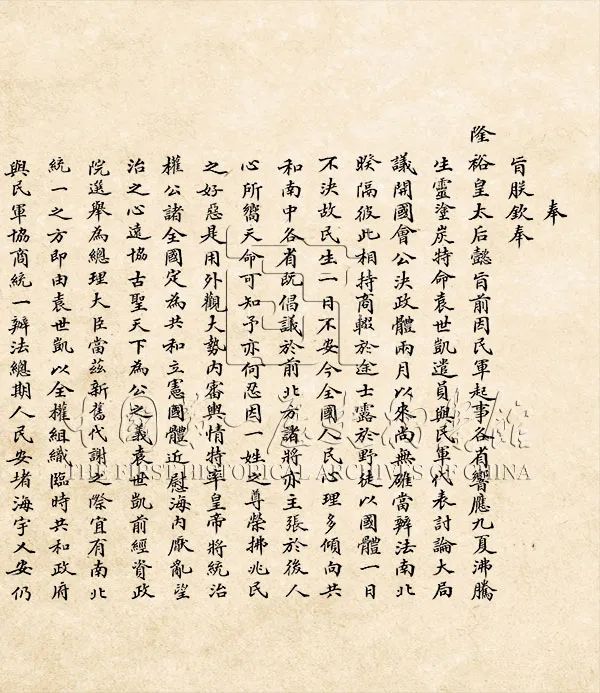 奉
旨朕欽奉
隆裕皇太后懿旨前因民軍起事各省響應九夏沸騰
生靈塗炭特命袁世凱遣員與民軍代表討論大局
議開國會公決政體兩月以來尚無確當辦法南北
暌隔彼此相持商輟於途士露於野徒以國體一日
不決故民生一日不安今全國人民心理多傾向共
和南中各省既倡議於前北方諸將亦主張於後人
心所嚮天命可知予亦何忍因一姓之尊榮拂兆民
之好惡是用外觀大勢內審輿情特率皇帝將統治
權公諸全國定為共和立憲國體近慰海內厭亂望
治之心遠協古聖天下為公之義袁世凱前經資政
院選舉為總理大臣當茲新舊代謝之際宜有南北
統一之方即由袁世凱以全權組織臨時共和政府
與民軍協商統一辦法總期人民安堵海宇乂安仍
THE FIRST HISTORICAL ARCHIVES OF CHINA